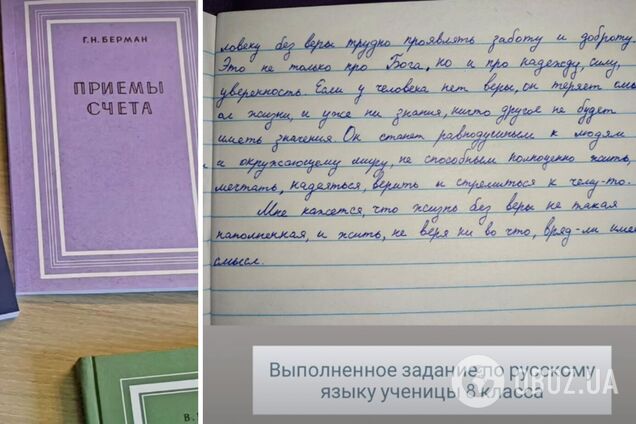 Г.Н. БЕРМАН
ПРИЕМЫ
СЧЕТА
В.
ловеку без веры трудно проявлять заботу и доброту.
Это не только про Бога, но и про надежду, силу,
уверенность. Если у человека нет веры, он теряет смы
сл жизни, и уже ни знания, ничто другое не будет
иметь значения. Он станет равнодушным к людям
и окружающему миру, не способным полноценно жить,
мечтать, надеяться, верить и стремиться к чему-то.
Мне кажется, что жизнь без веры не такая
наполненная, и жить, не веря ни во что, вряд-ли име
смысл.
Выполненное задание по русскому
языку ученицы 8 класса
OBOZ.UA